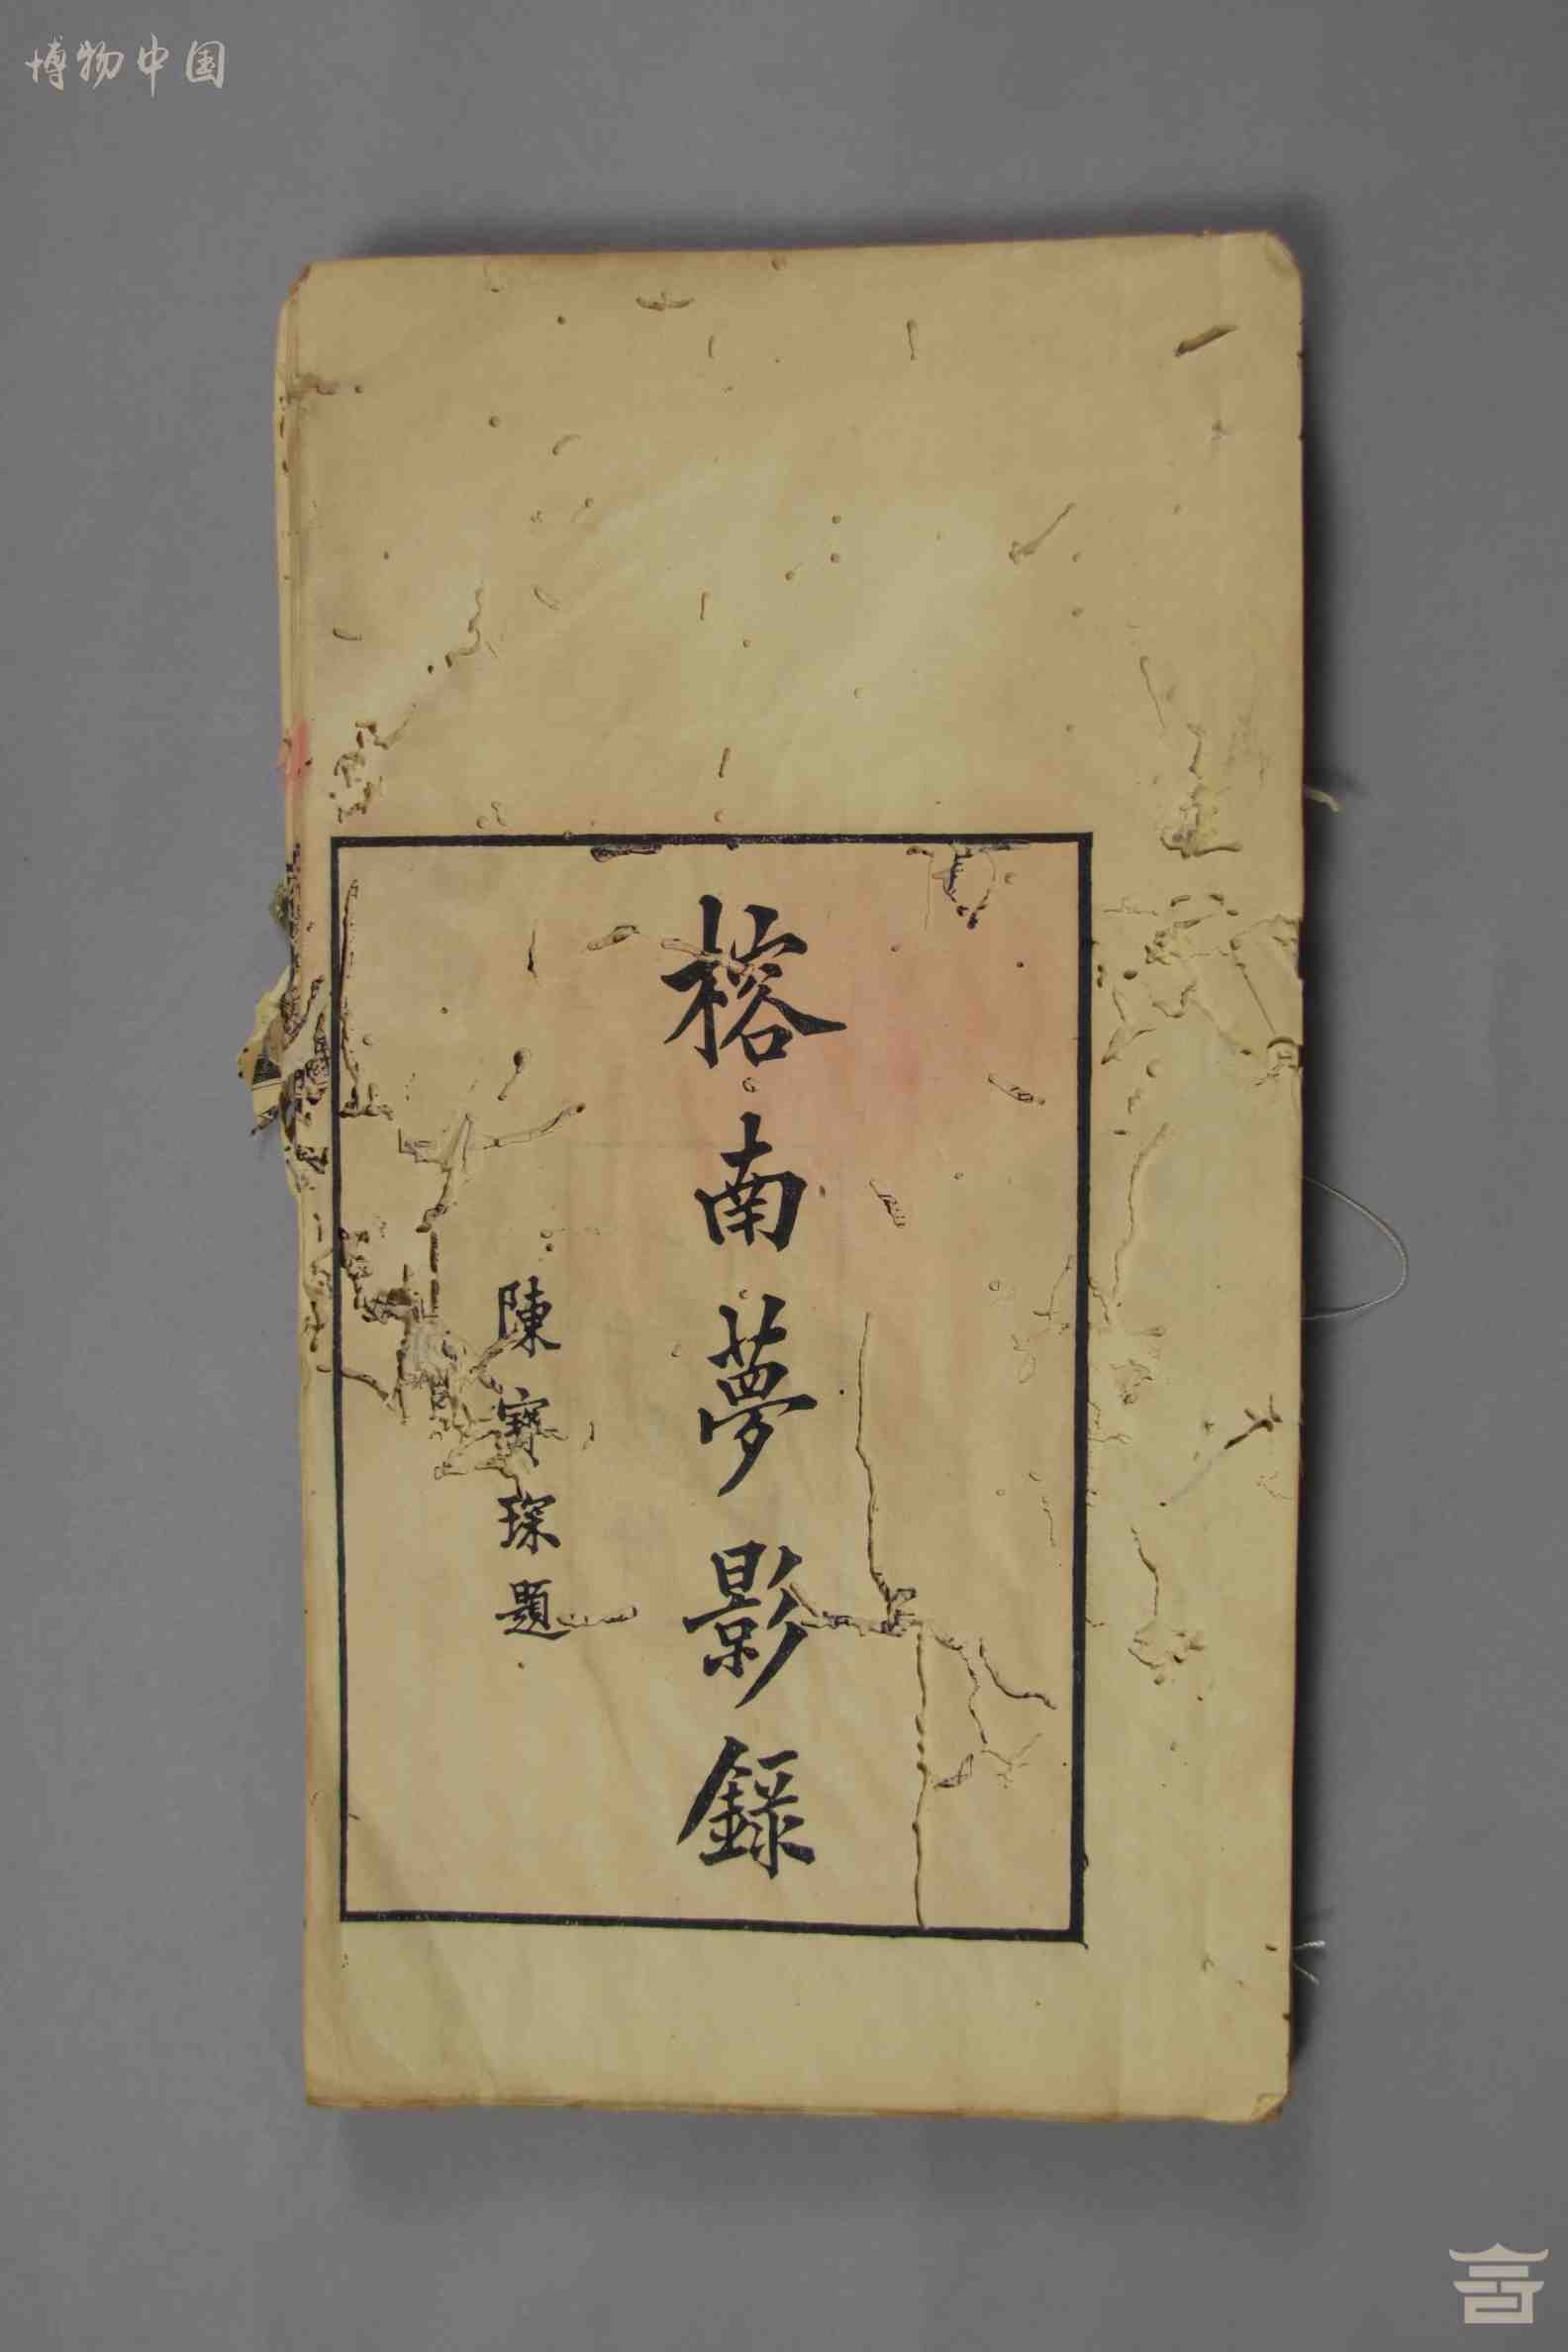 博物中国
榕南夢影錄
陳寶琛題